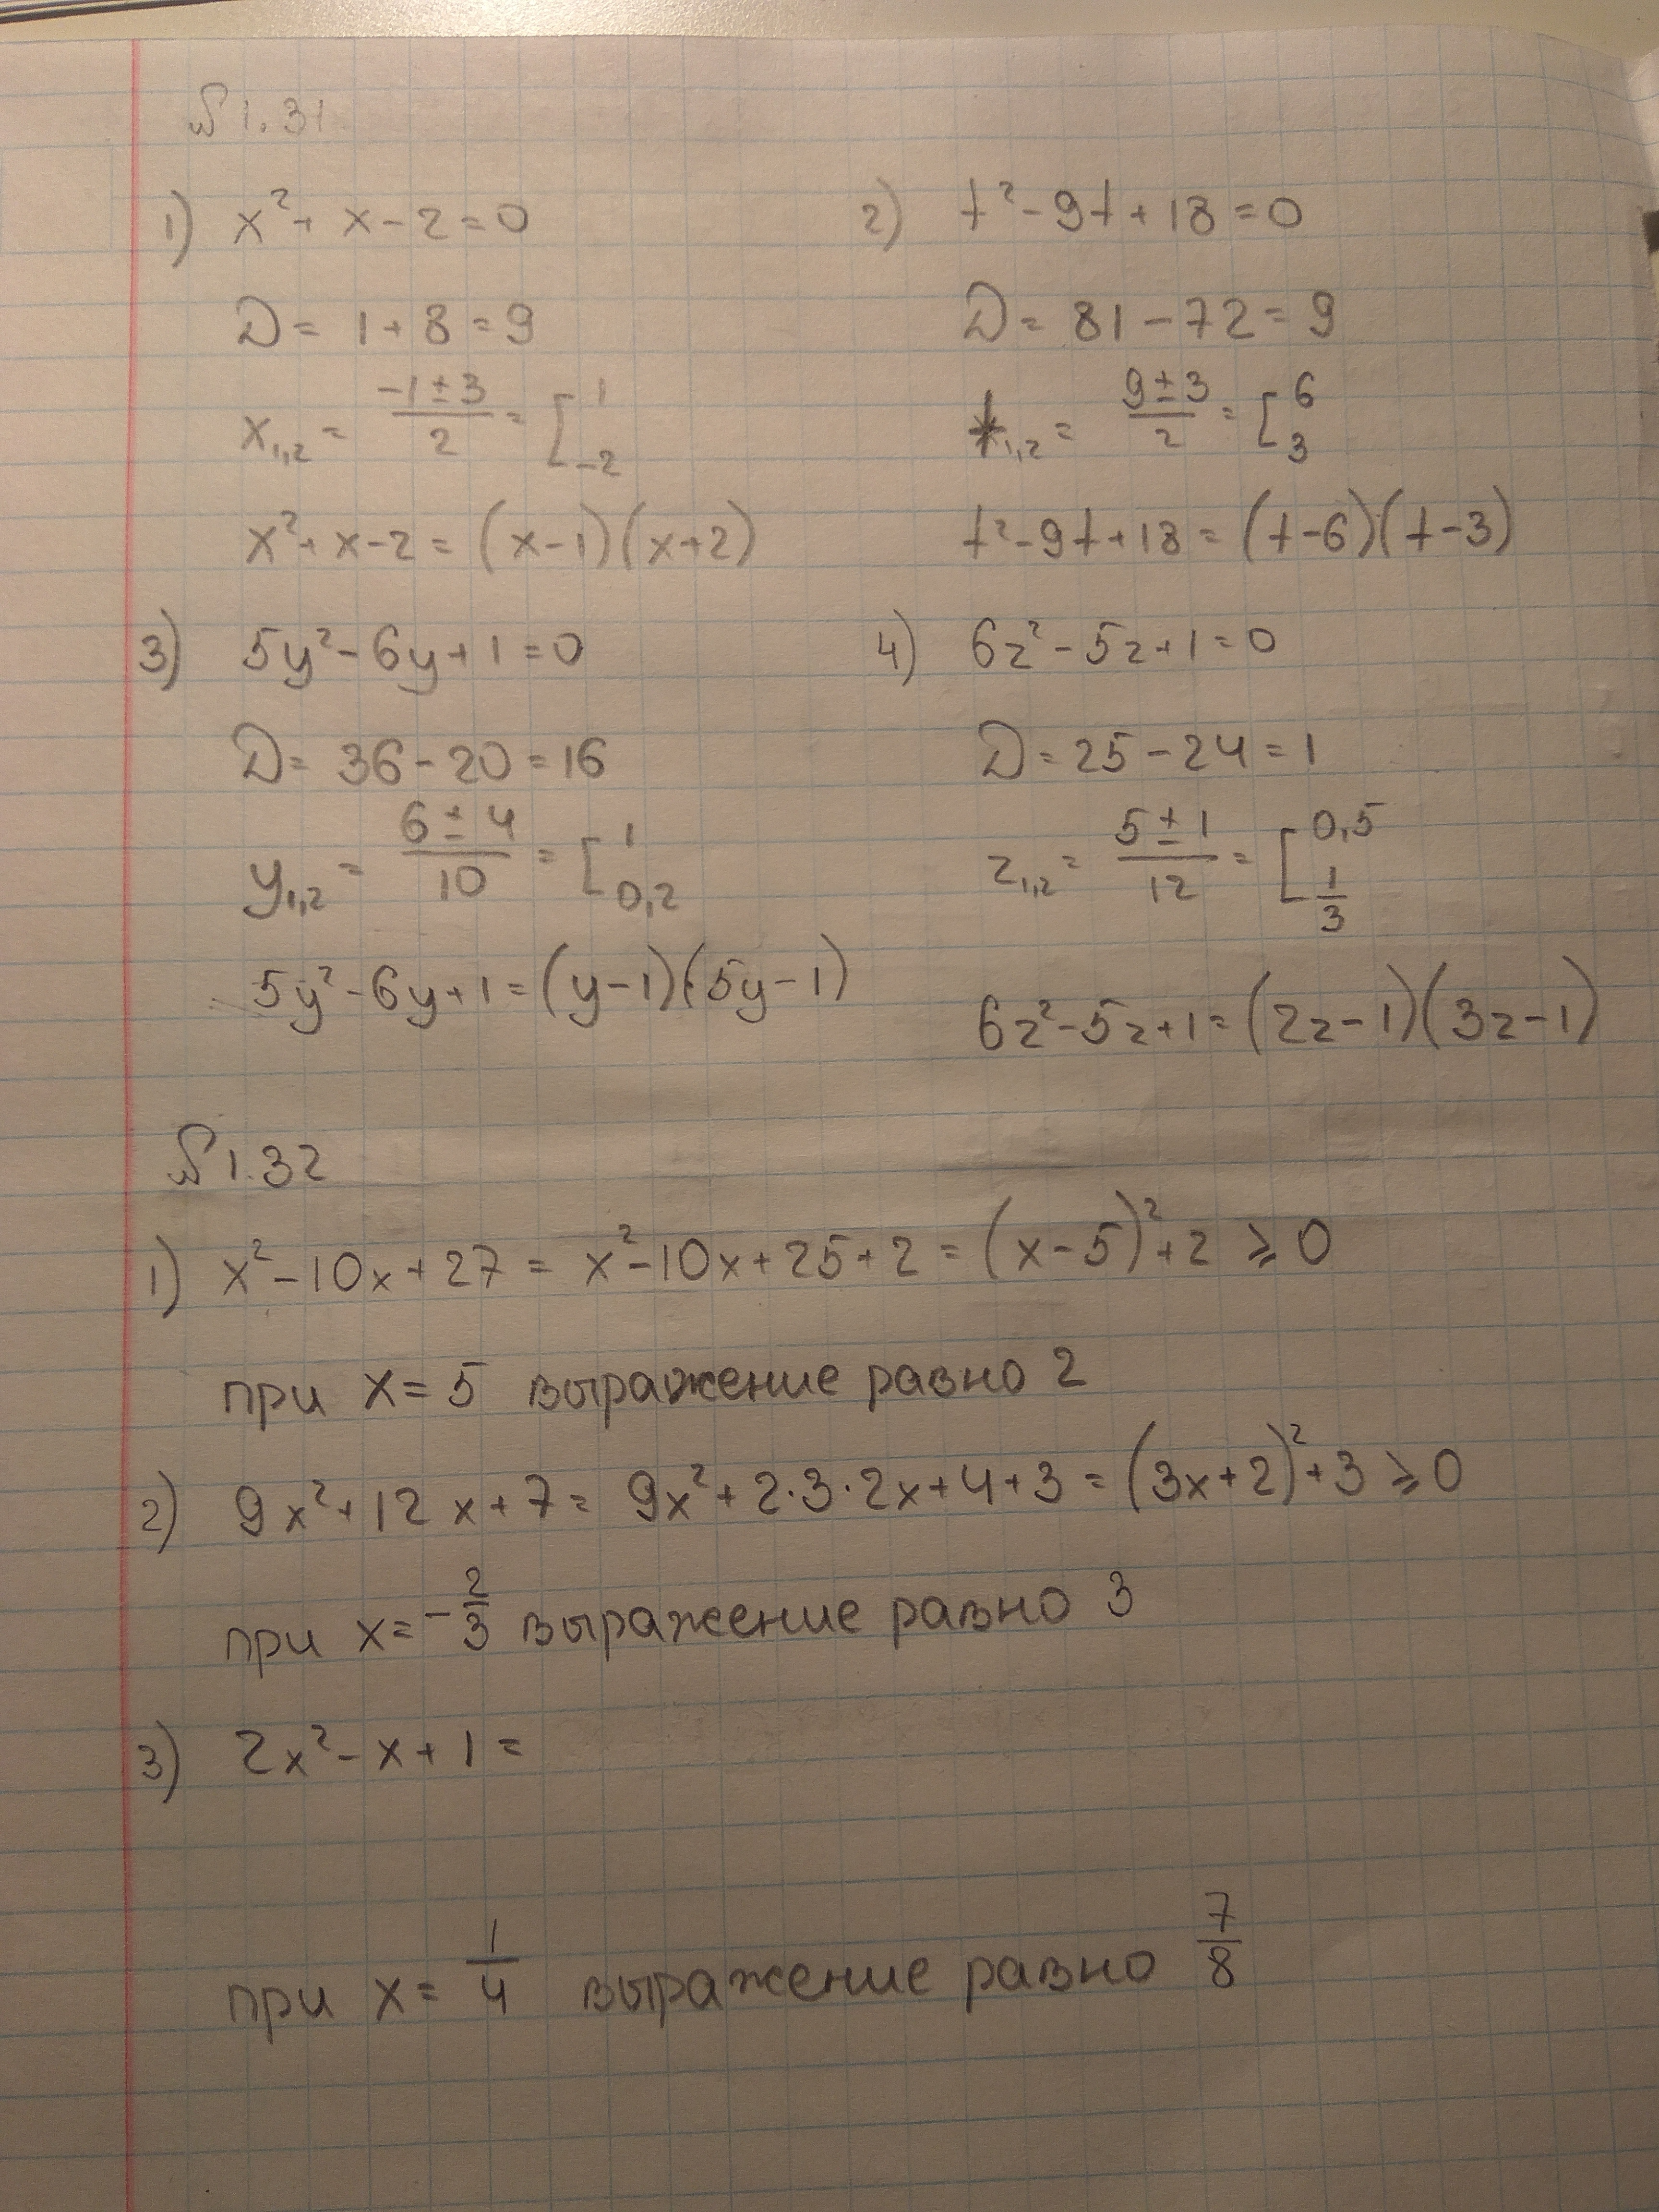 № 1.31
1) x² + x - 2 = 0
D = 1 + 8 = 9
x₁,₂ = (-1 ± 3)/2 = [ 1 -2
x² + x - 2 = (x - 1)(x + 2)
2) t² - 9t + 18 = 0
D = 81 - 72 = 9
t₁,₂ = (9 ± 3)/2 = [ 6 3
t² - 9t + 18 = (t - 6)(t - 3)
3) 5y² - 6y + 1 = 0
D = 36 - 20 = 16
y₁,₂ = (6 ± 4)/10 = [ 1 0,2
5y² - 6y + 1 = (y - 1)(5y - 1)
4) 6z² - 5z + 1 = 0
D = 25 - 24 = 1
z₁,₂ = (5 ± 1)/12 = [ 0,5 1/3
6z² - 5z + 1 = (2z - 1)(3z - 1)
№ 1.32
1) x² - 10x + 27 = x² - 10x + 25 + 2 = (x - 5)² + 2 ⩾ 0
при x = 5 выражение равно 2
2) 9x² + 12x + 7 = 9x² + 2·3·2x + 4 + 3 = (3x + 2)² + 3 ⩾ 0
при x = -2/3 выражение равно 3
3) 2x² - x + 1 =
при x = 1/4 выражение равно 7/8